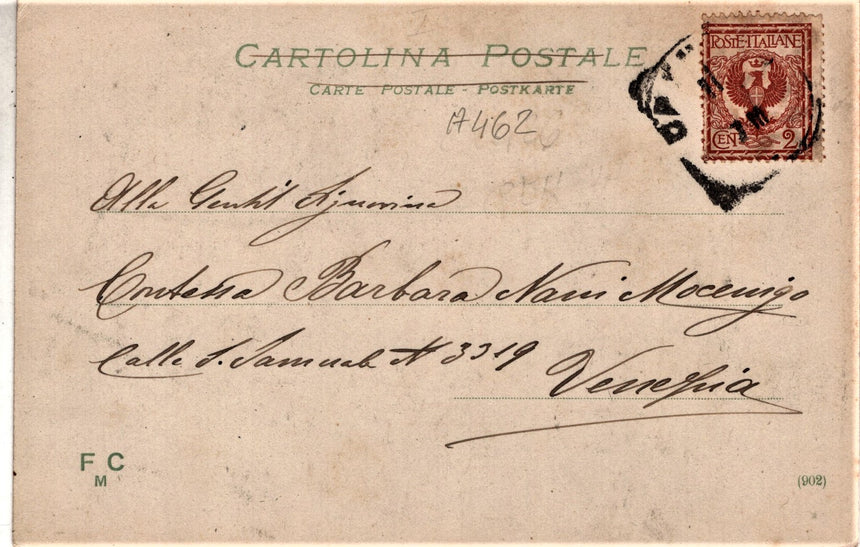 CARTOLINA POSTALE
CARTE POSTALE - POSTKARTE
POSTE·ITALIANE
CENT 2
A462
Alla Gentil Signorina
Contessa Barbara Nani Mocenigo
Calle S. Samuele N 3319
Venezia
F C
M
(902)